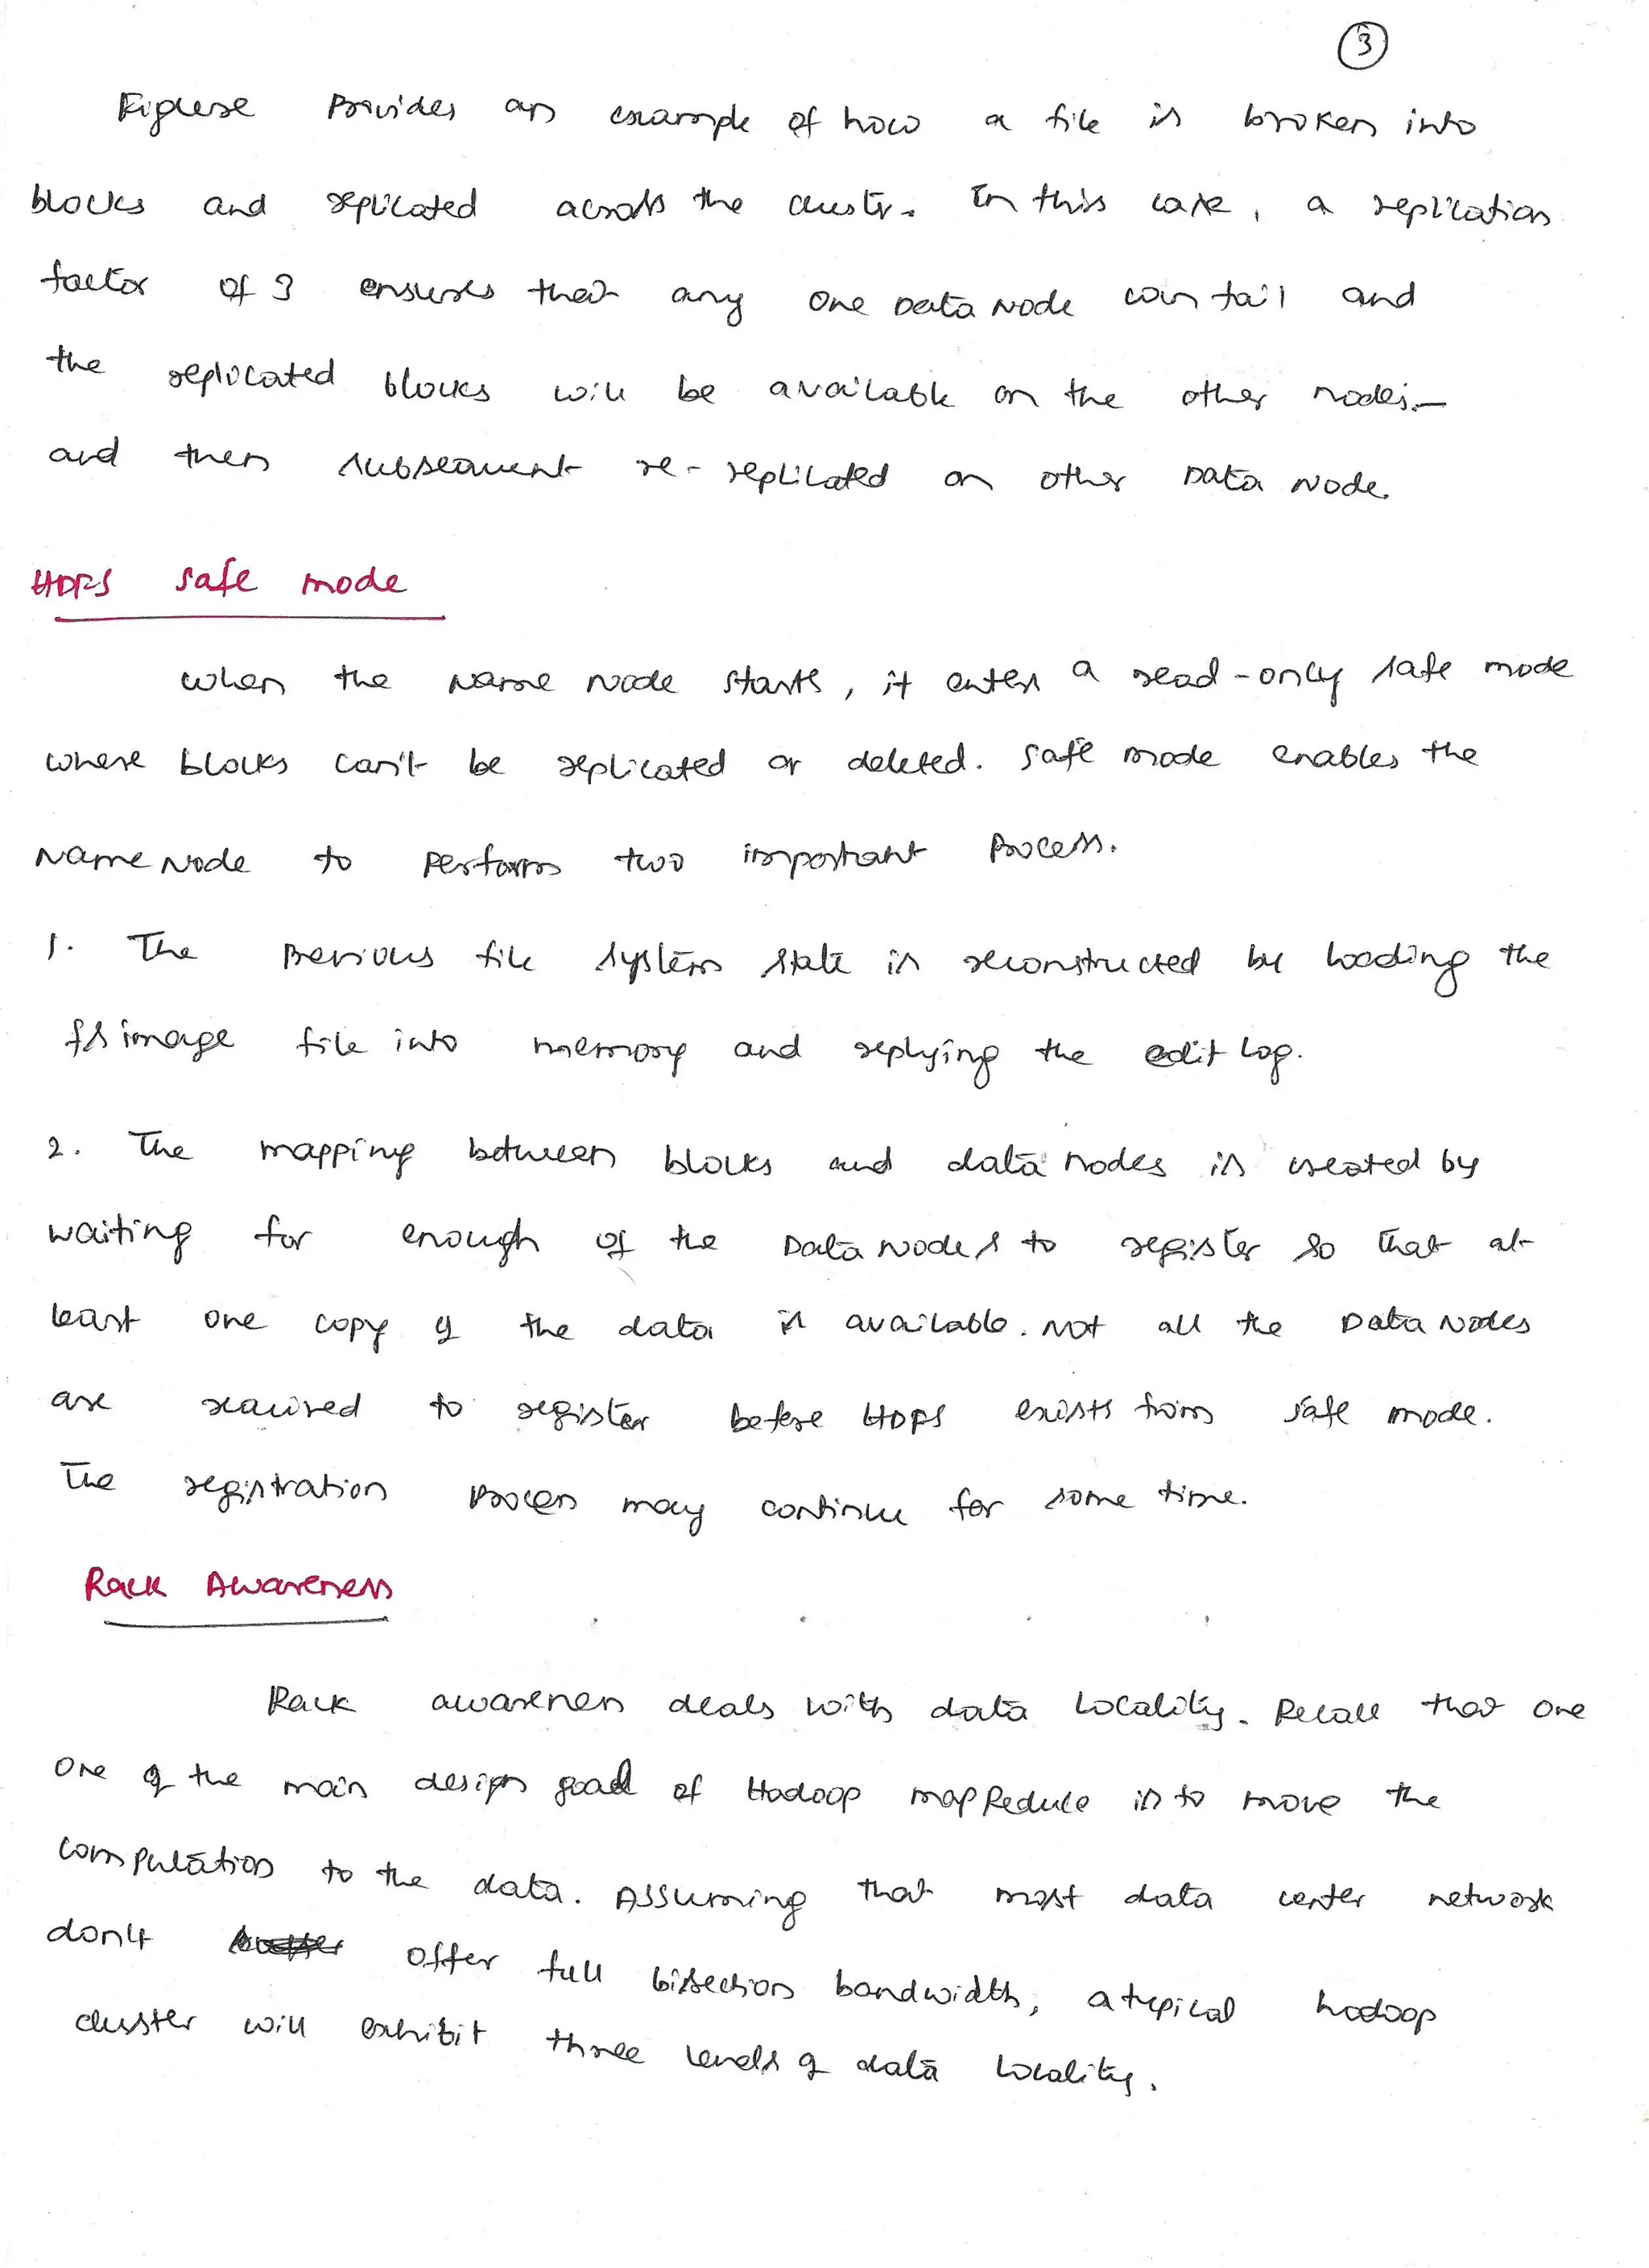 3
Figure Provides an example of how a file is broken into
blocks and replicated across the cluster. In this case, a replication
factor of 3 ensures that any one Data Node can fail and
the replicated blocks will be available on the other nodes -
and then subsequent re-replicated on other Data Node.
HDFS Safe mode
When the Name Node starts, it enters a read-only safe mode
where blocks can't be replicated or deleted. Safe mode enables the
NameNode to Perform two important Process.
1. The Previous file system state is reconstructed by loading the
fsimage file into memory and replying the edit log.
2. The mapping between blocks and data nodes is created by
waiting for enough of the Data Nodes to register so that at
least one copy of the data is available. Not all the Data Nodes
are required to register before HDFS exists from safe mode.
The registration Process may continue for some time.
Rack Awareness
Rack awareness deals with data Locality. Recall that one
one of the main design goal of Hadoop mapReduce is to move the
computation to the data. Assuming that most data center network
don't offer full bisection bandwidth, a typical hadoop
cluster will exhibit three levels of data locality.